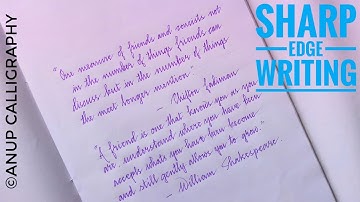 ©ANUP CALLIGRAPHY
SHARP
EDGE
WRITING
"One measure of friends and consists not
in the number of things friends can
discuss but in the number of things
the meet longer mention".
- Clifton Fadiman
"A friend is one that knows you as you
are, understand where you have been
accepts whats you have been become
and still gently allows you to grow.
- William Shakespeare...